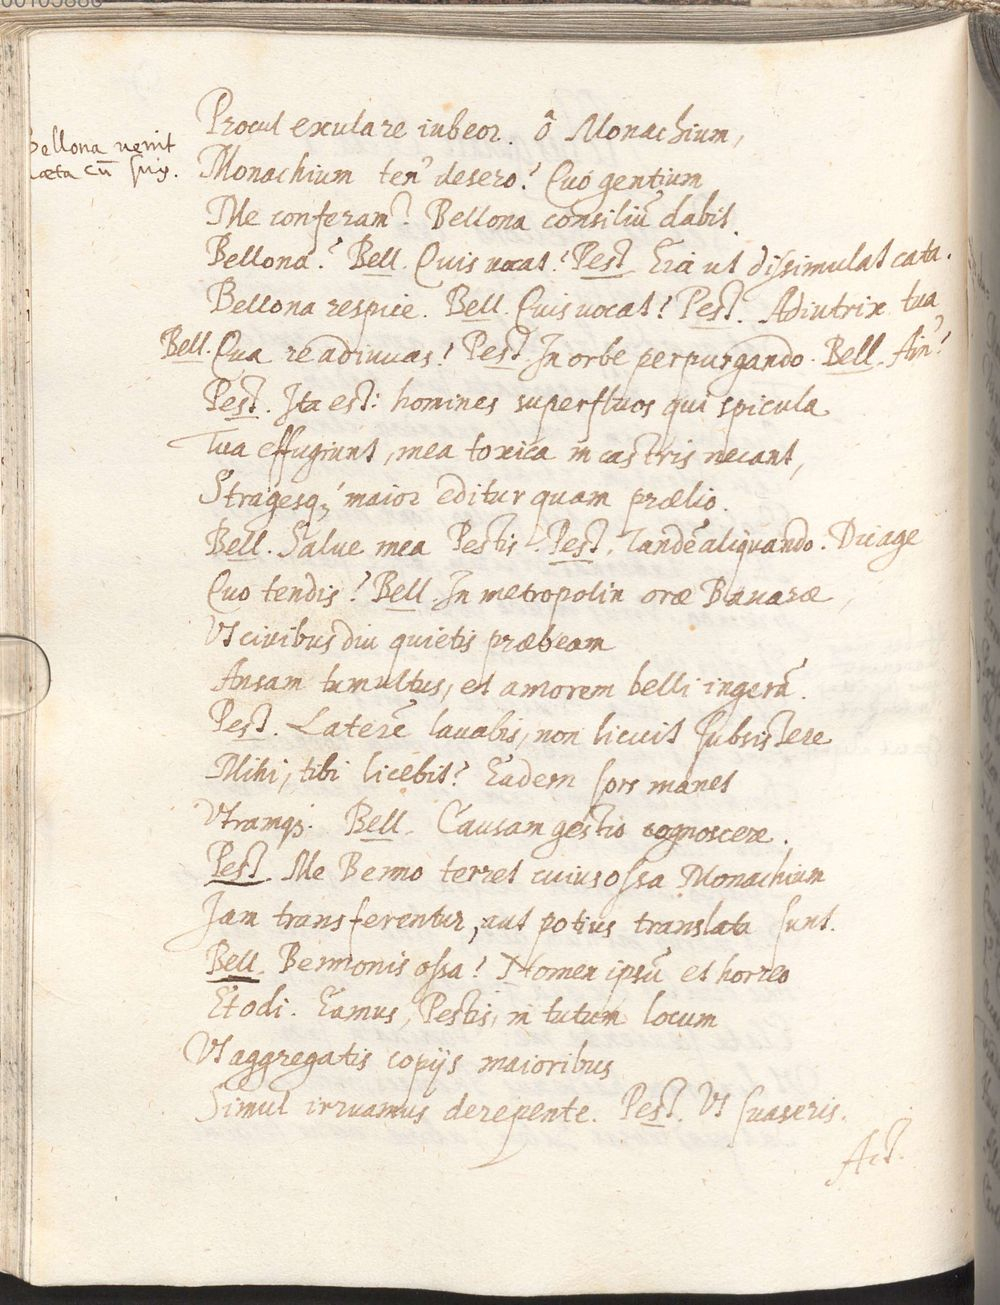 Bellona venit
læta cū suis.
Procul exulare iubeor. ô Monachium,
Monachium ten' desero? Quó gentium
Me conferam? Bellona consiliū dabit.
Bellona? Bell. Quis vocat? Pest. Eia ut dissimulat cata.
Bellona respice. Bell. Quis vocat? Pest. Adiutrix tua
Bell. Qua re adiuvas? Pest. In orbe perpurgando. Bell. Ain?
Pest. Ita est: homines superfluos qui spicula
Tua effugiunt, mea toxica in castris necant,
Stragesq; maior editur quam prælio.
Bell. Salve mea Pestis. Pest. Tandē aliquando. Dic age
Quo tendis? Bell. In metropolin oræ Bavaræ,
Ut civibus diu quietis præbeam
Ansam tumultus, et amorem belli ingerā.
Pest. Laterē lavabis, non licuit subsistere
Mihi, tibi licebit? Eadem sors manet
Utramq;. Bell. Causam gestio cognoscere.
Pest. Me Benno terret cuius ossa Monachium
Jam transferentur, aut potius translata sunt.
Bell. Bennonis ossa? Nomen ipsū et horreo
Et odi. Eamus, Pestis, in tutum locum
Ut aggregatis copijs maioribus
Simul irruamus derepente. Pest. Ut suaseris.
Act.